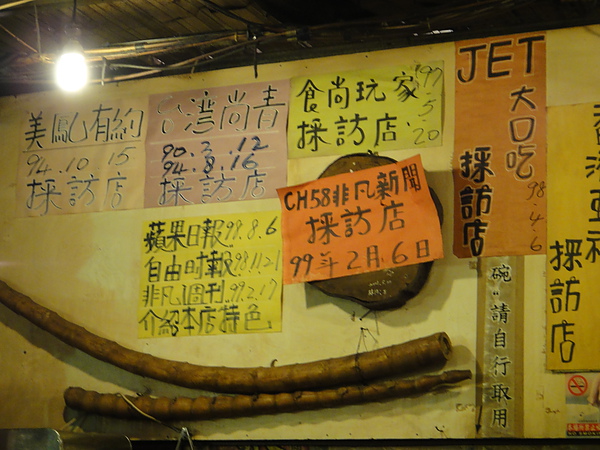 美鳳有約
94.10 15
採訪店
台灣尚青
90.2.12
94.8.16
採訪店
食尚玩家
採訪店
97.5.20
JET
大口吃
採訪店
98.4.6
蘋果日報99.8.6
自由時報98.11.21
非凡週刊99.2.17
介紹本店特色
CH58非凡新聞
採訪店
99年2月6日
採訪店
碗 請自行取用